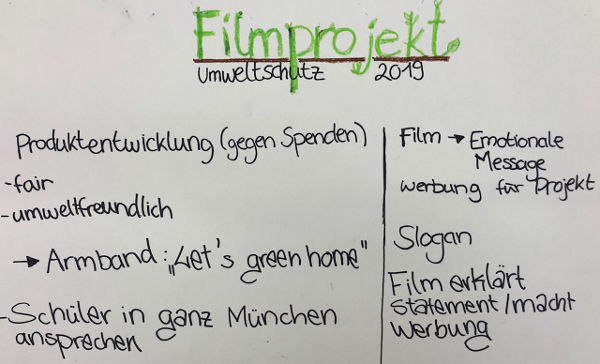 Filmprojekt
Umweltschutz 2019
Produktentwicklung (gegen Spenden)
-fair
-umweltfreundlich
→ Armband: „Let's green home"
-Schüler in ganz München
ansprechen
Film → Emotionale
Message
Werbung für Projekt
Slogan
Film erklärt
Statement/macht
Werbung